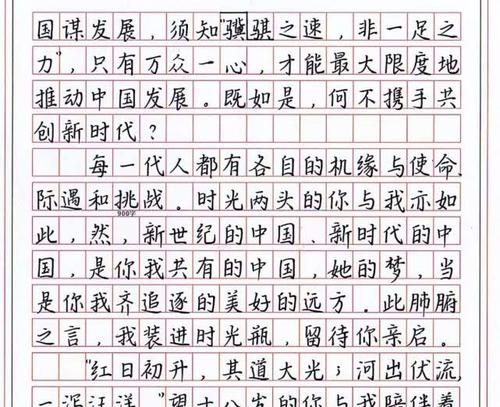 国谋发展，须知"骥骐之速，非一足之
力"，只有万众一心，才能最大限度地
推动中国发展。既如是，何不携手共
创新时代？
每一代人都有各自的机缘与使命，
际遇和挑战。时光两头的你与我亦如
900字
此，然，新世纪的中国、新时代的中
国，是你我共有的中国，她的梦，当
是你我齐追逐的美好的远方。此肺腑
之言，我装进时光瓶，留待你亲启。
"红日初升，其道大光；河出伏流，
一泻汪洋。"望十八岁的你与我陪伴着